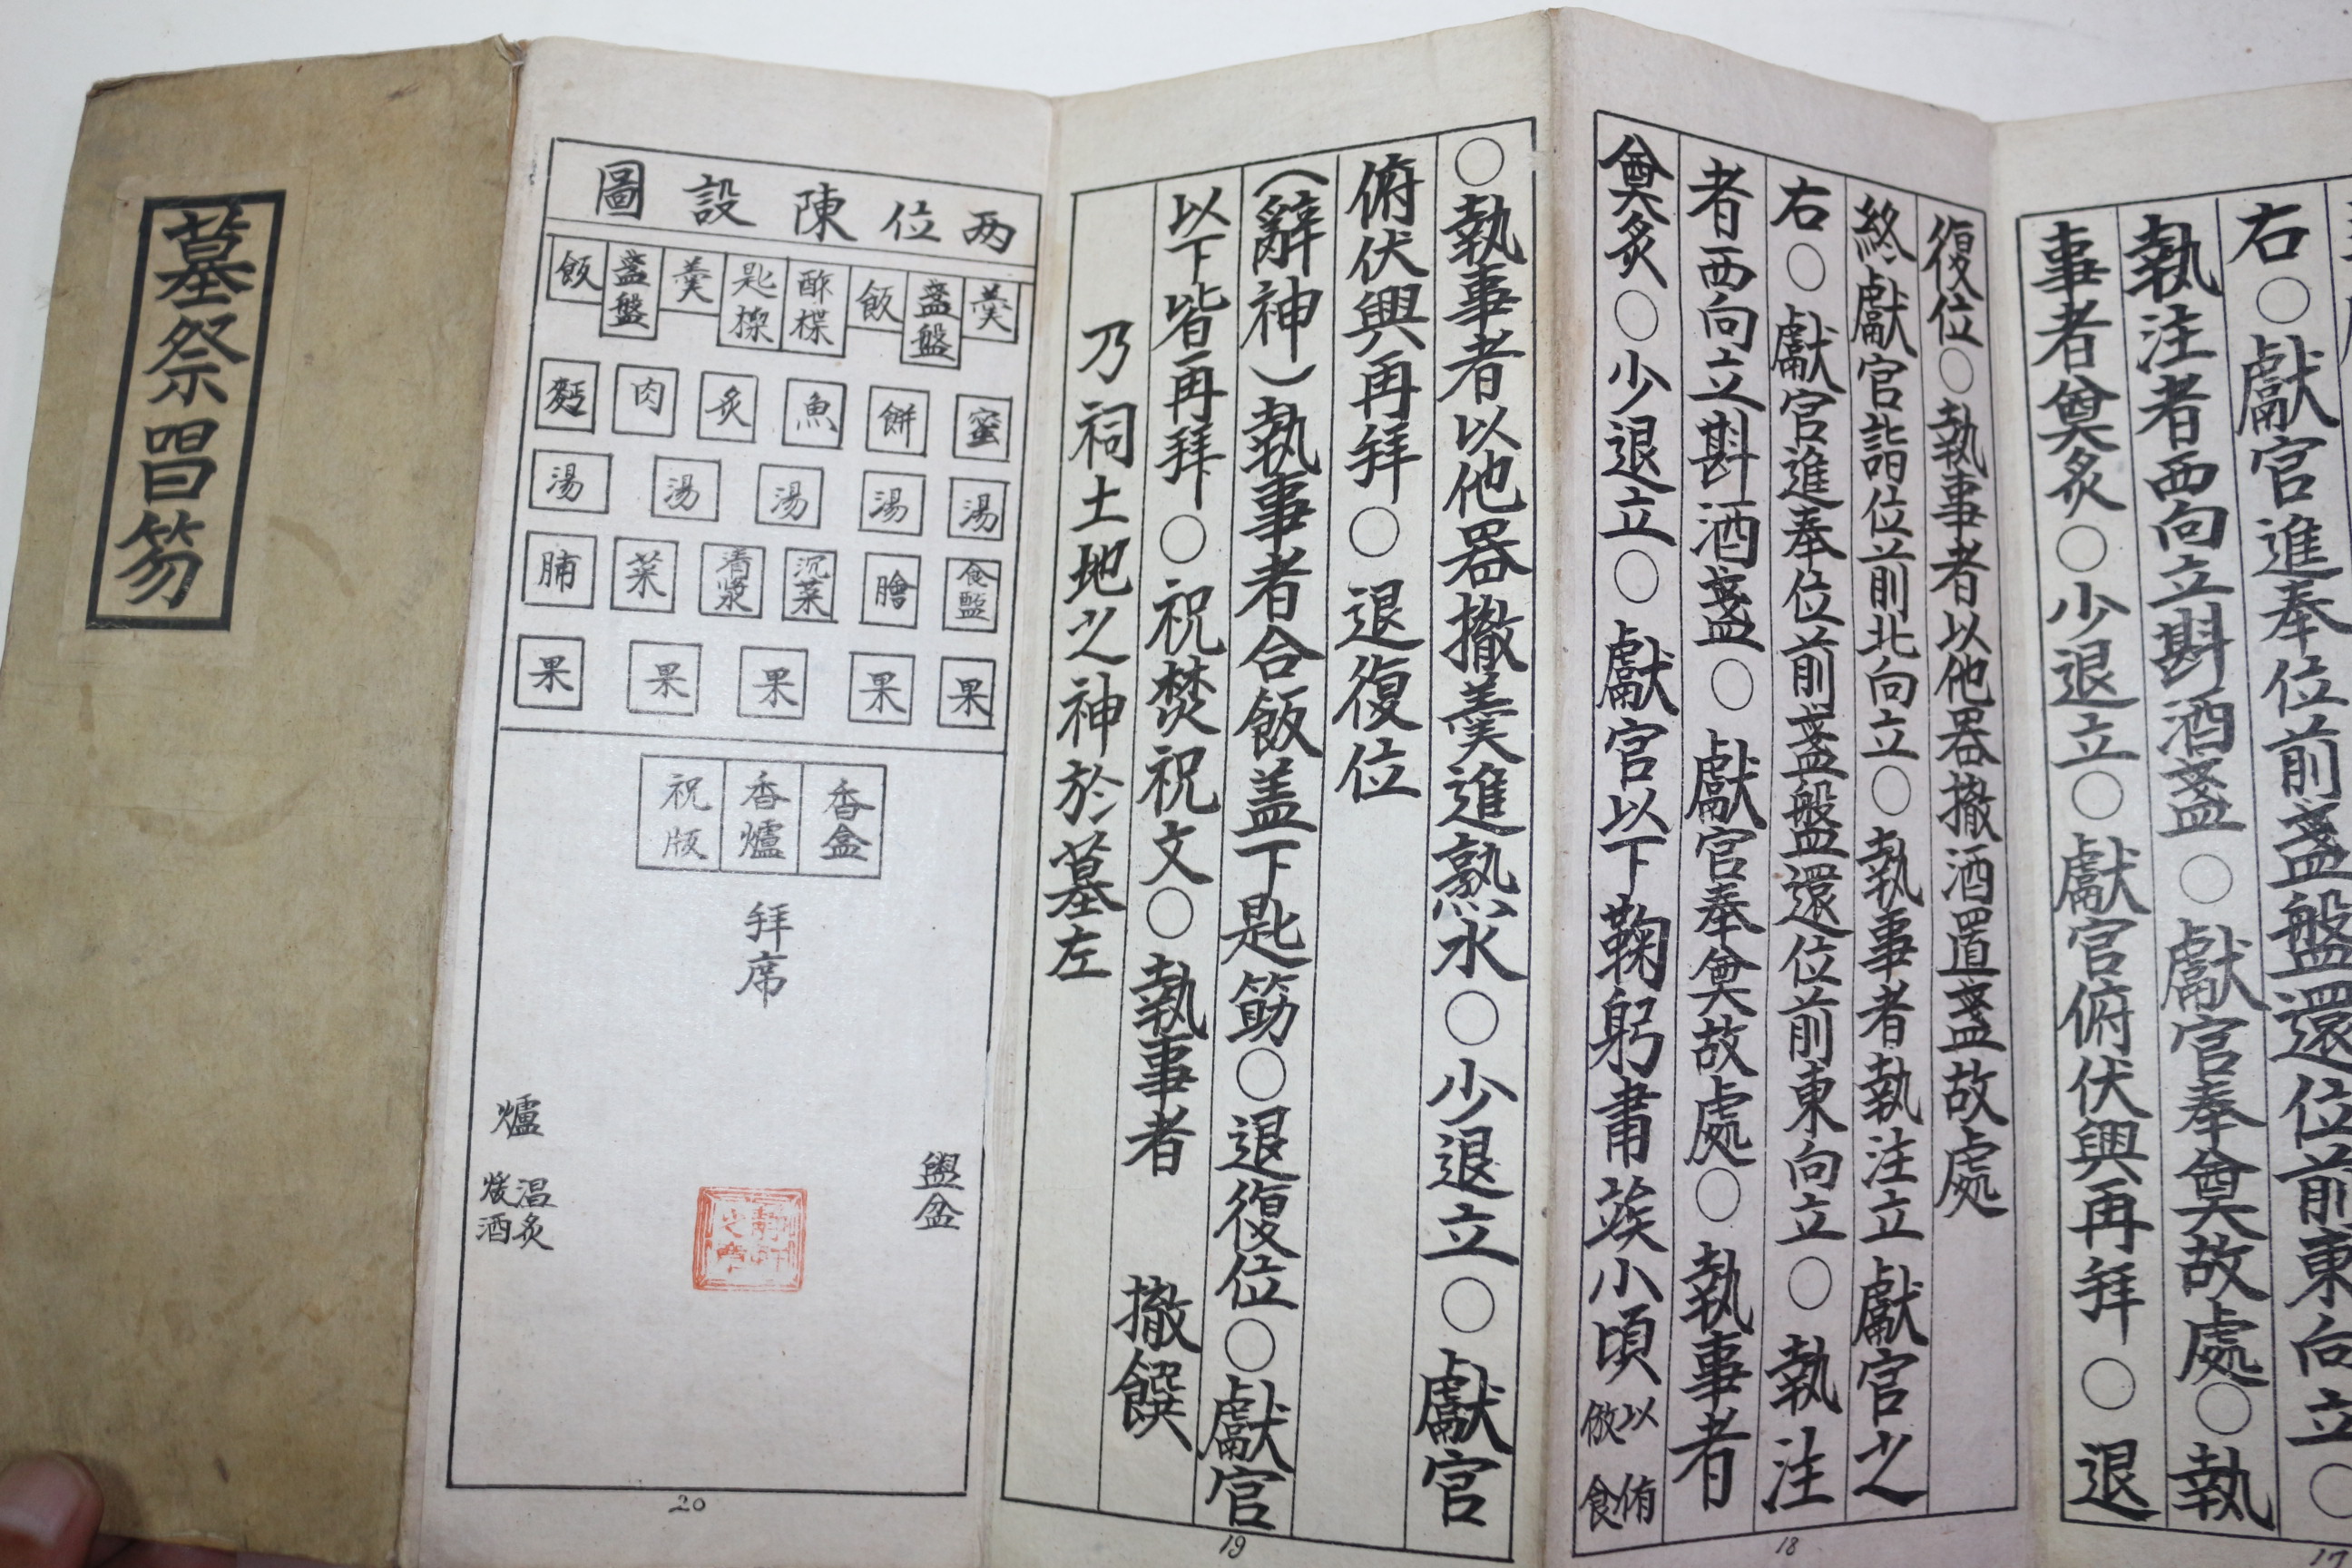 右○獻官進奉位前盞盤還位前東向立○
執注者西向立斟酒盞○獻官奉奠故處○執
事者奠炙○少退立○獻官俯伏興再拜○退
17
復位○執事者以他器撤酒置盞故處
終獻官詣位前北向立○執事者執注立獻官之
右○獻官進奉位前盞盤還位前東向立○執注
者西向立斟酒盞○獻官奉奠故處○執事者
奠炙○少退立○獻官以下鞠躬肅竢小頃以侑倣食
18
○執事者以他器撤羹進熟水○少退立○獻官
俯伏興再拜○退復位
(辭神)執事者合飯盖下匙筯○退復位○獻官
以下皆再拜○祝焚祝文○執事者 撤饌
乃祠土地之神於墓左
19
両位陳設圖
羹 盞盤 飯 酢楪 匙楪 羹 盞盤 飯
蜜 餠 魚 炙 肉 麪
湯 湯 湯 湯 湯
食醢 膾 沉菜 清漿 菜 脯
果 果 果 果 果
香盒 香爐 祝版
拜席
盥盆
爐
温炙
煖酒
20
墓祭笏